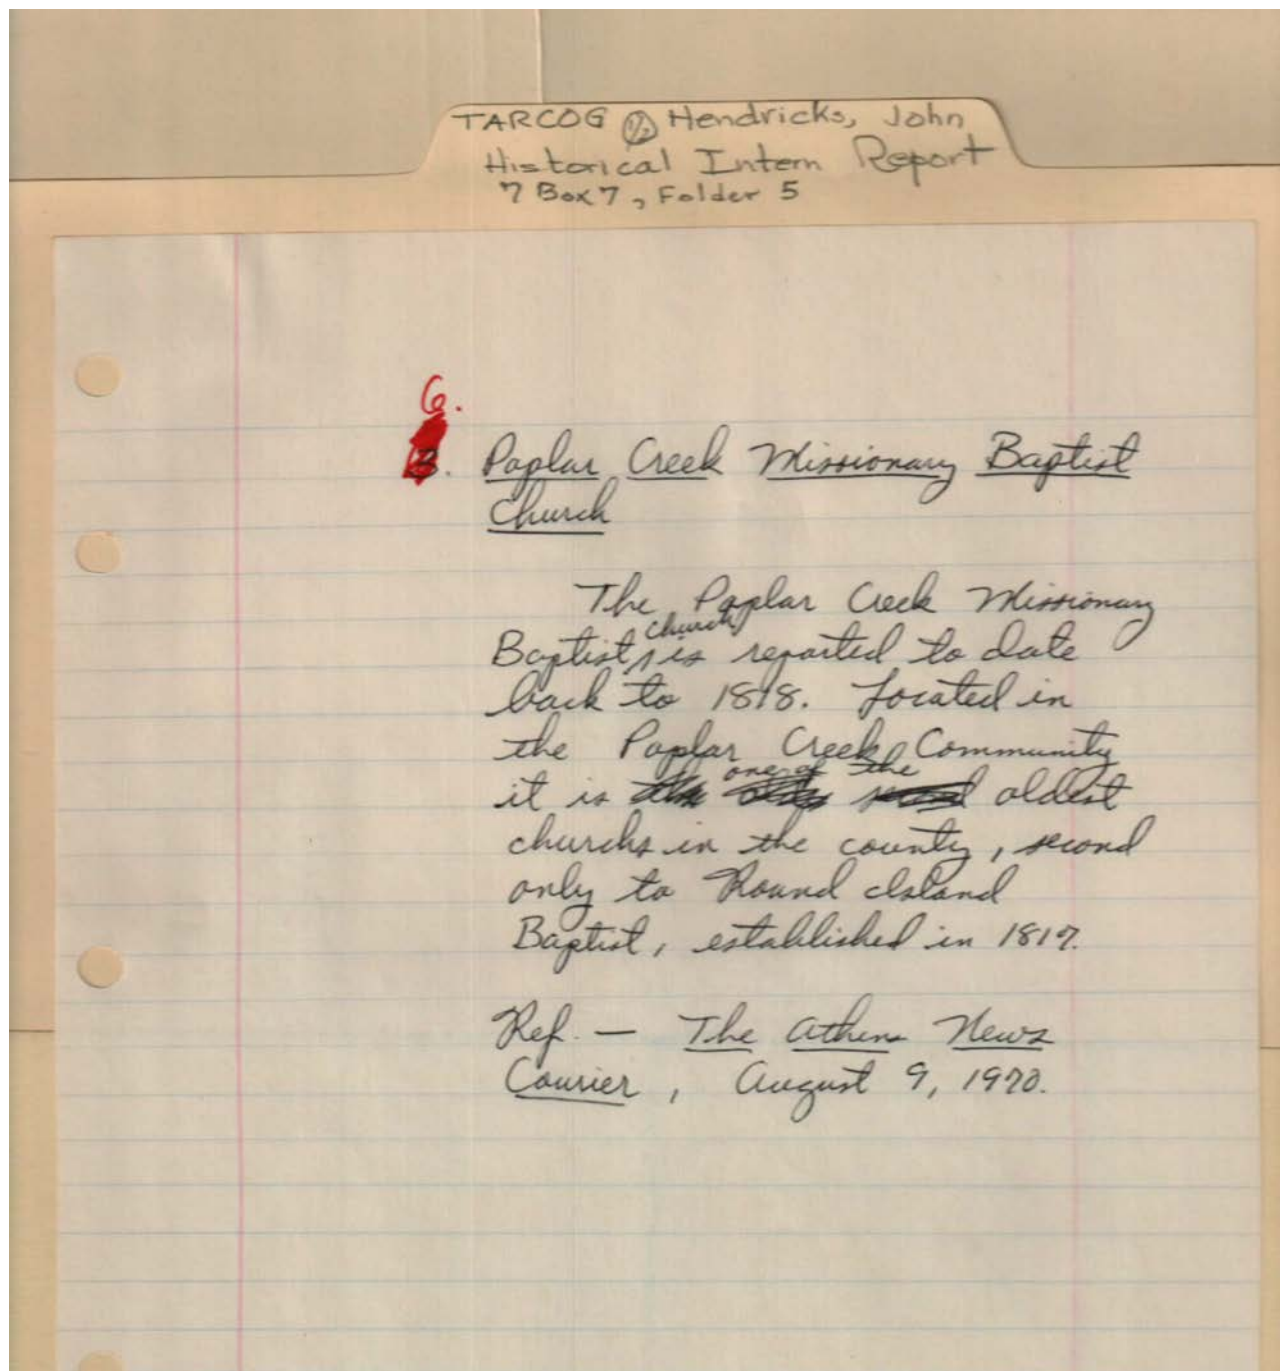 TARCOG 1/2 Hendricks, John
Historical Intern Report
7 Box 7, Folder 5
6.
3. Poplar Creek Missionary Baptist
Church
The Poplar Creek Missionary
Baptist church is reported to date
back to 1818. Located in
the Poplar Creek Community
it is one of the oldest
churchs in the county, second
only to Round Island
Baptist, established in 1817.
Ref. — The Athens News
Courier, August 9, 1970.